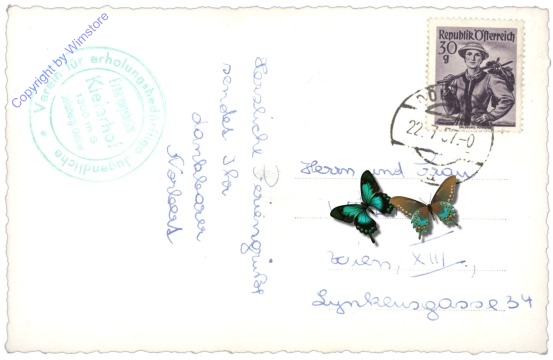 Copyright by Wimstore
Verein für erholungsbedürftige Jugendliche
Kleinhof
1250 m a
Herzliche Feriengrüße
sendet Ihr
dankbarer
Norbert
Republik Österreich
30
g
22.
Herrn und Frau
Wien, XIII.,
Lynkeusgasse 34